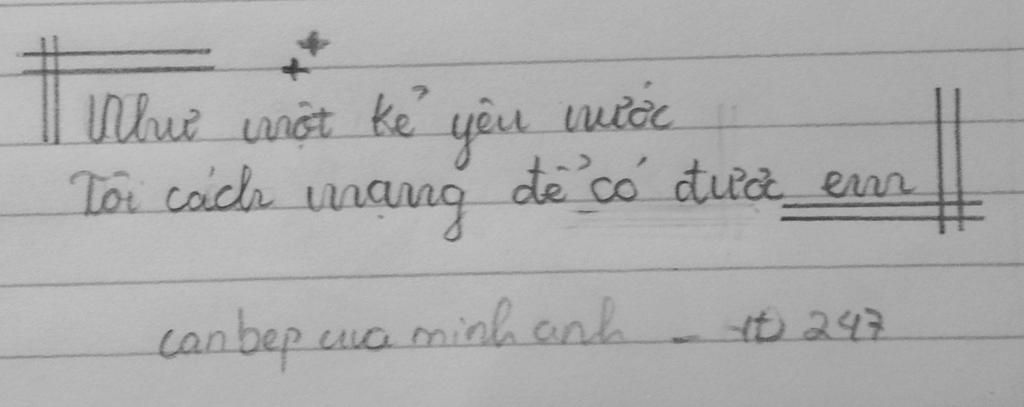 Như một kẻ yêu nước
Tôi cách mạng để có được em
canbep cua minh anh - 247